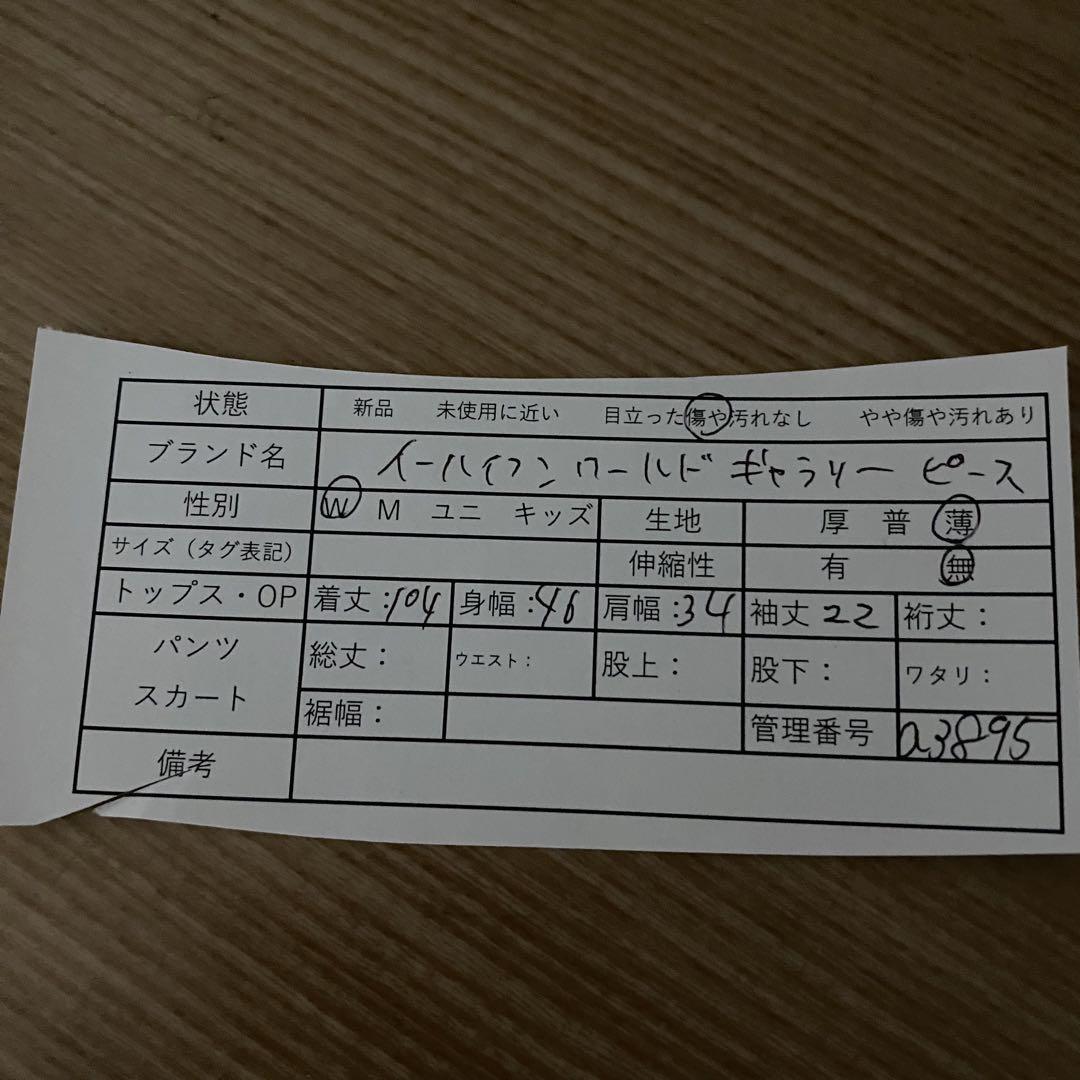 状態 新品 未使用に近い 目立った傷や汚れなし やや傷や汚れあり
ブランド名 イーハイフンワールドギャラリー ピース
性別 W M ユニ キッズ 生地 厚 普 薄
サイズ（タグ表記） 伸縮性 有 無
トップス・OP 着丈：104 身幅：46 肩幅：34 袖丈 22 裄丈：
パンツ スカート 総丈： ウエスト： 股上： 股下： ワタリ：
裾幅： 管理番号 a3895
備考